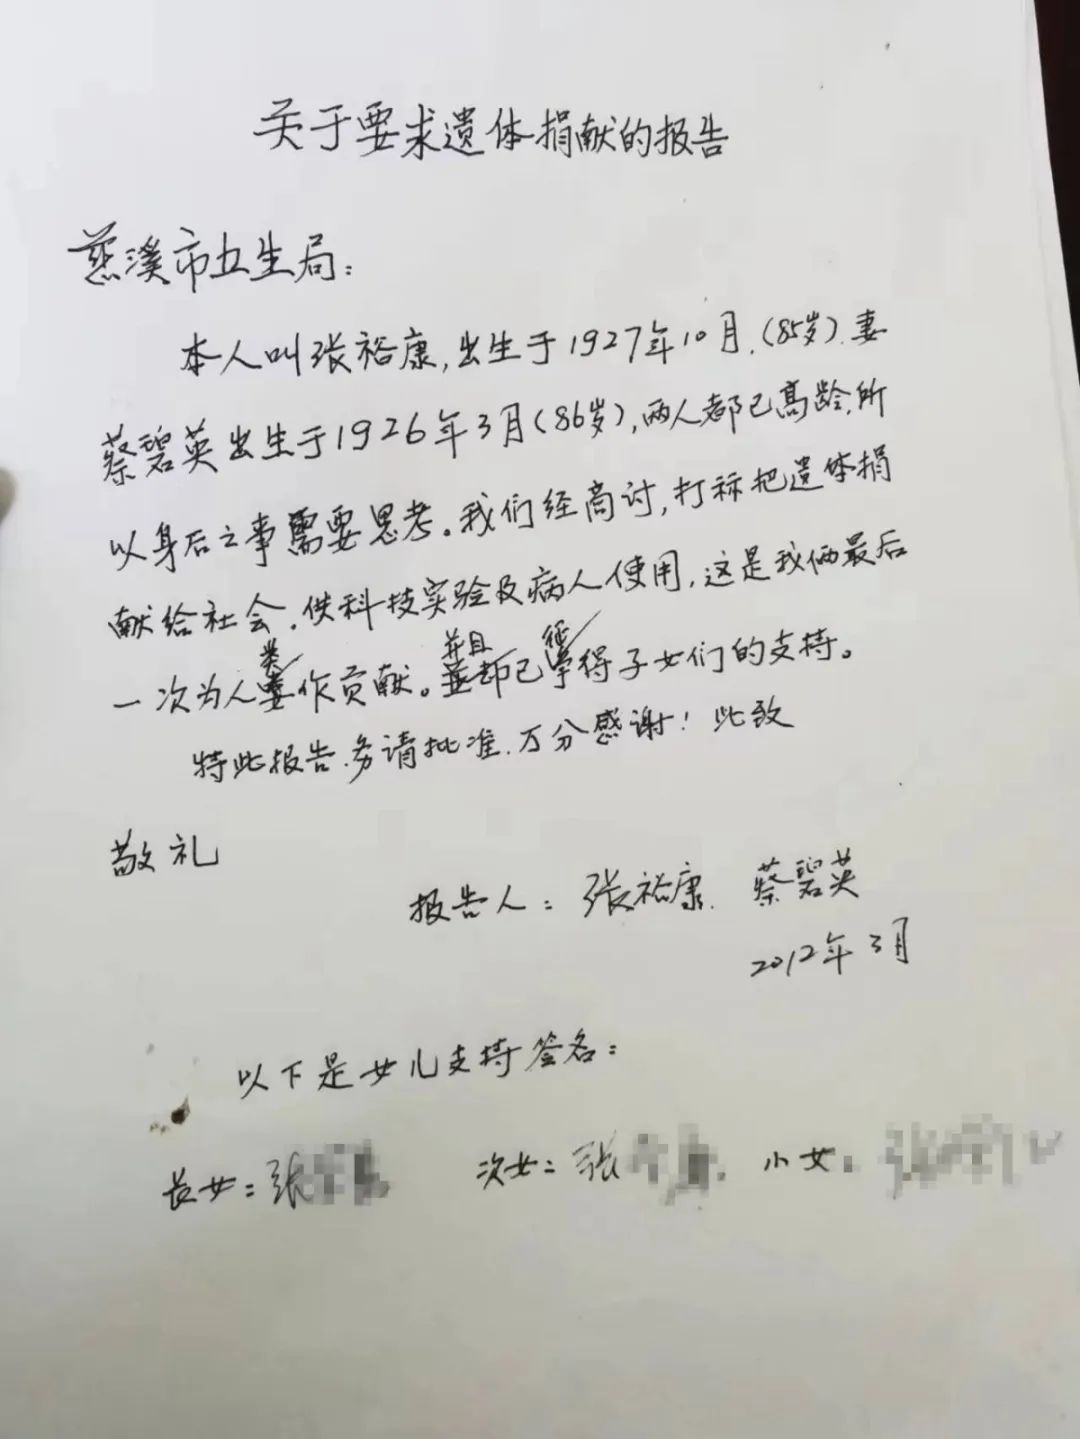 关于要求遗体捐献的报告
慈溪市卫生局：
本人叫张裕康，出生于1927年10月，(85岁)．妻
蔡碧英出生于1926年3月(86岁)，两人都已高龄，所
以身后之事需要思考。我们经商讨，打称把遗体捐
献给社会，供科技实验及病人使用，这是我俩最后
一次为人类作贡献。并且却已征得子女们的支持。
特此报告，务请批准，万分感谢！此致
敬礼
报告人：张裕康．蔡碧英
2012年3月
以下是女儿支持签名：
长女：张 次女：张 小女：张